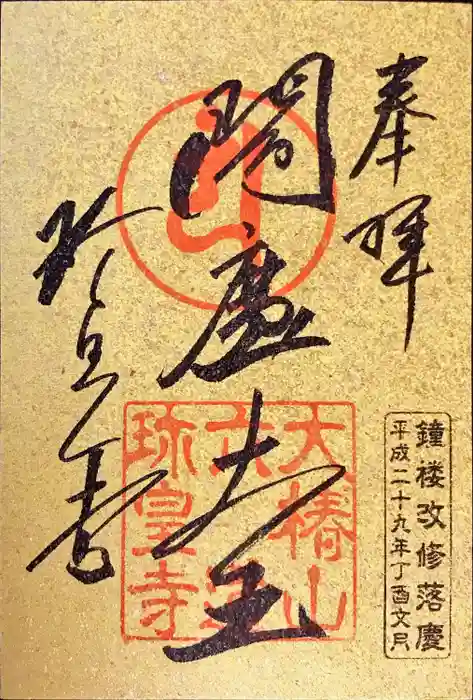 奉拝
閻魔大王
珍皇寺
大椿山
六道
珍皇寺
鐘楼改修落慶
平成二十九年丁酉文月